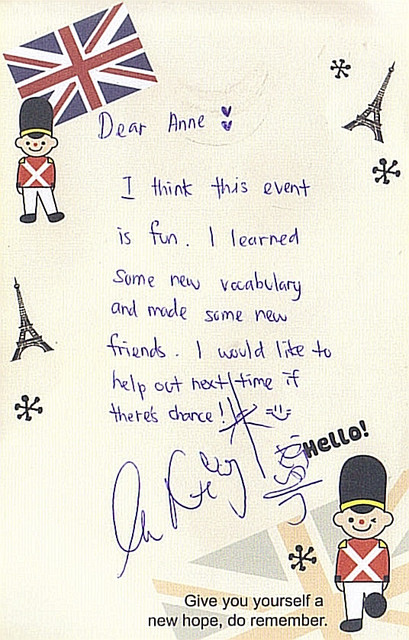 Dear Anne
I think this event
is fun. I learned
some new vocabulary
and made some new
friends. I would like to
help out next time if
there's chance! =)
Hello!
Give you yourself a
new hope, do remember.